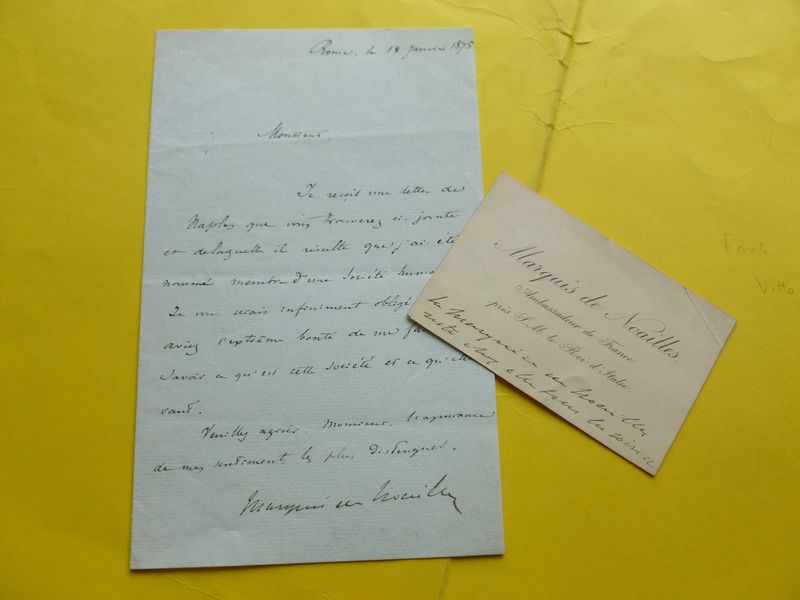 Rome, le 18 Janvier 1875
Monsieur,
Je reçois une lettre de
Naples que vous trouverez ci-jointe
et de laquelle il résulte que j'ai été
nommé membre d'une Société
Je vous serais infiniment obligé
aviez l'extrême bonté de me
savoir ce qu'est cette société et ce qu'elle
vaut.
Veuillez agréer, Monsieur, l'assurance
de mes sentiments les plus distingués.
Marquis de Noailles
Marquis de Noailles,
Ambassadeur de France
près S. M. le Roi d'Italie.
la Marquise de Noailles
reste chez elle tous les